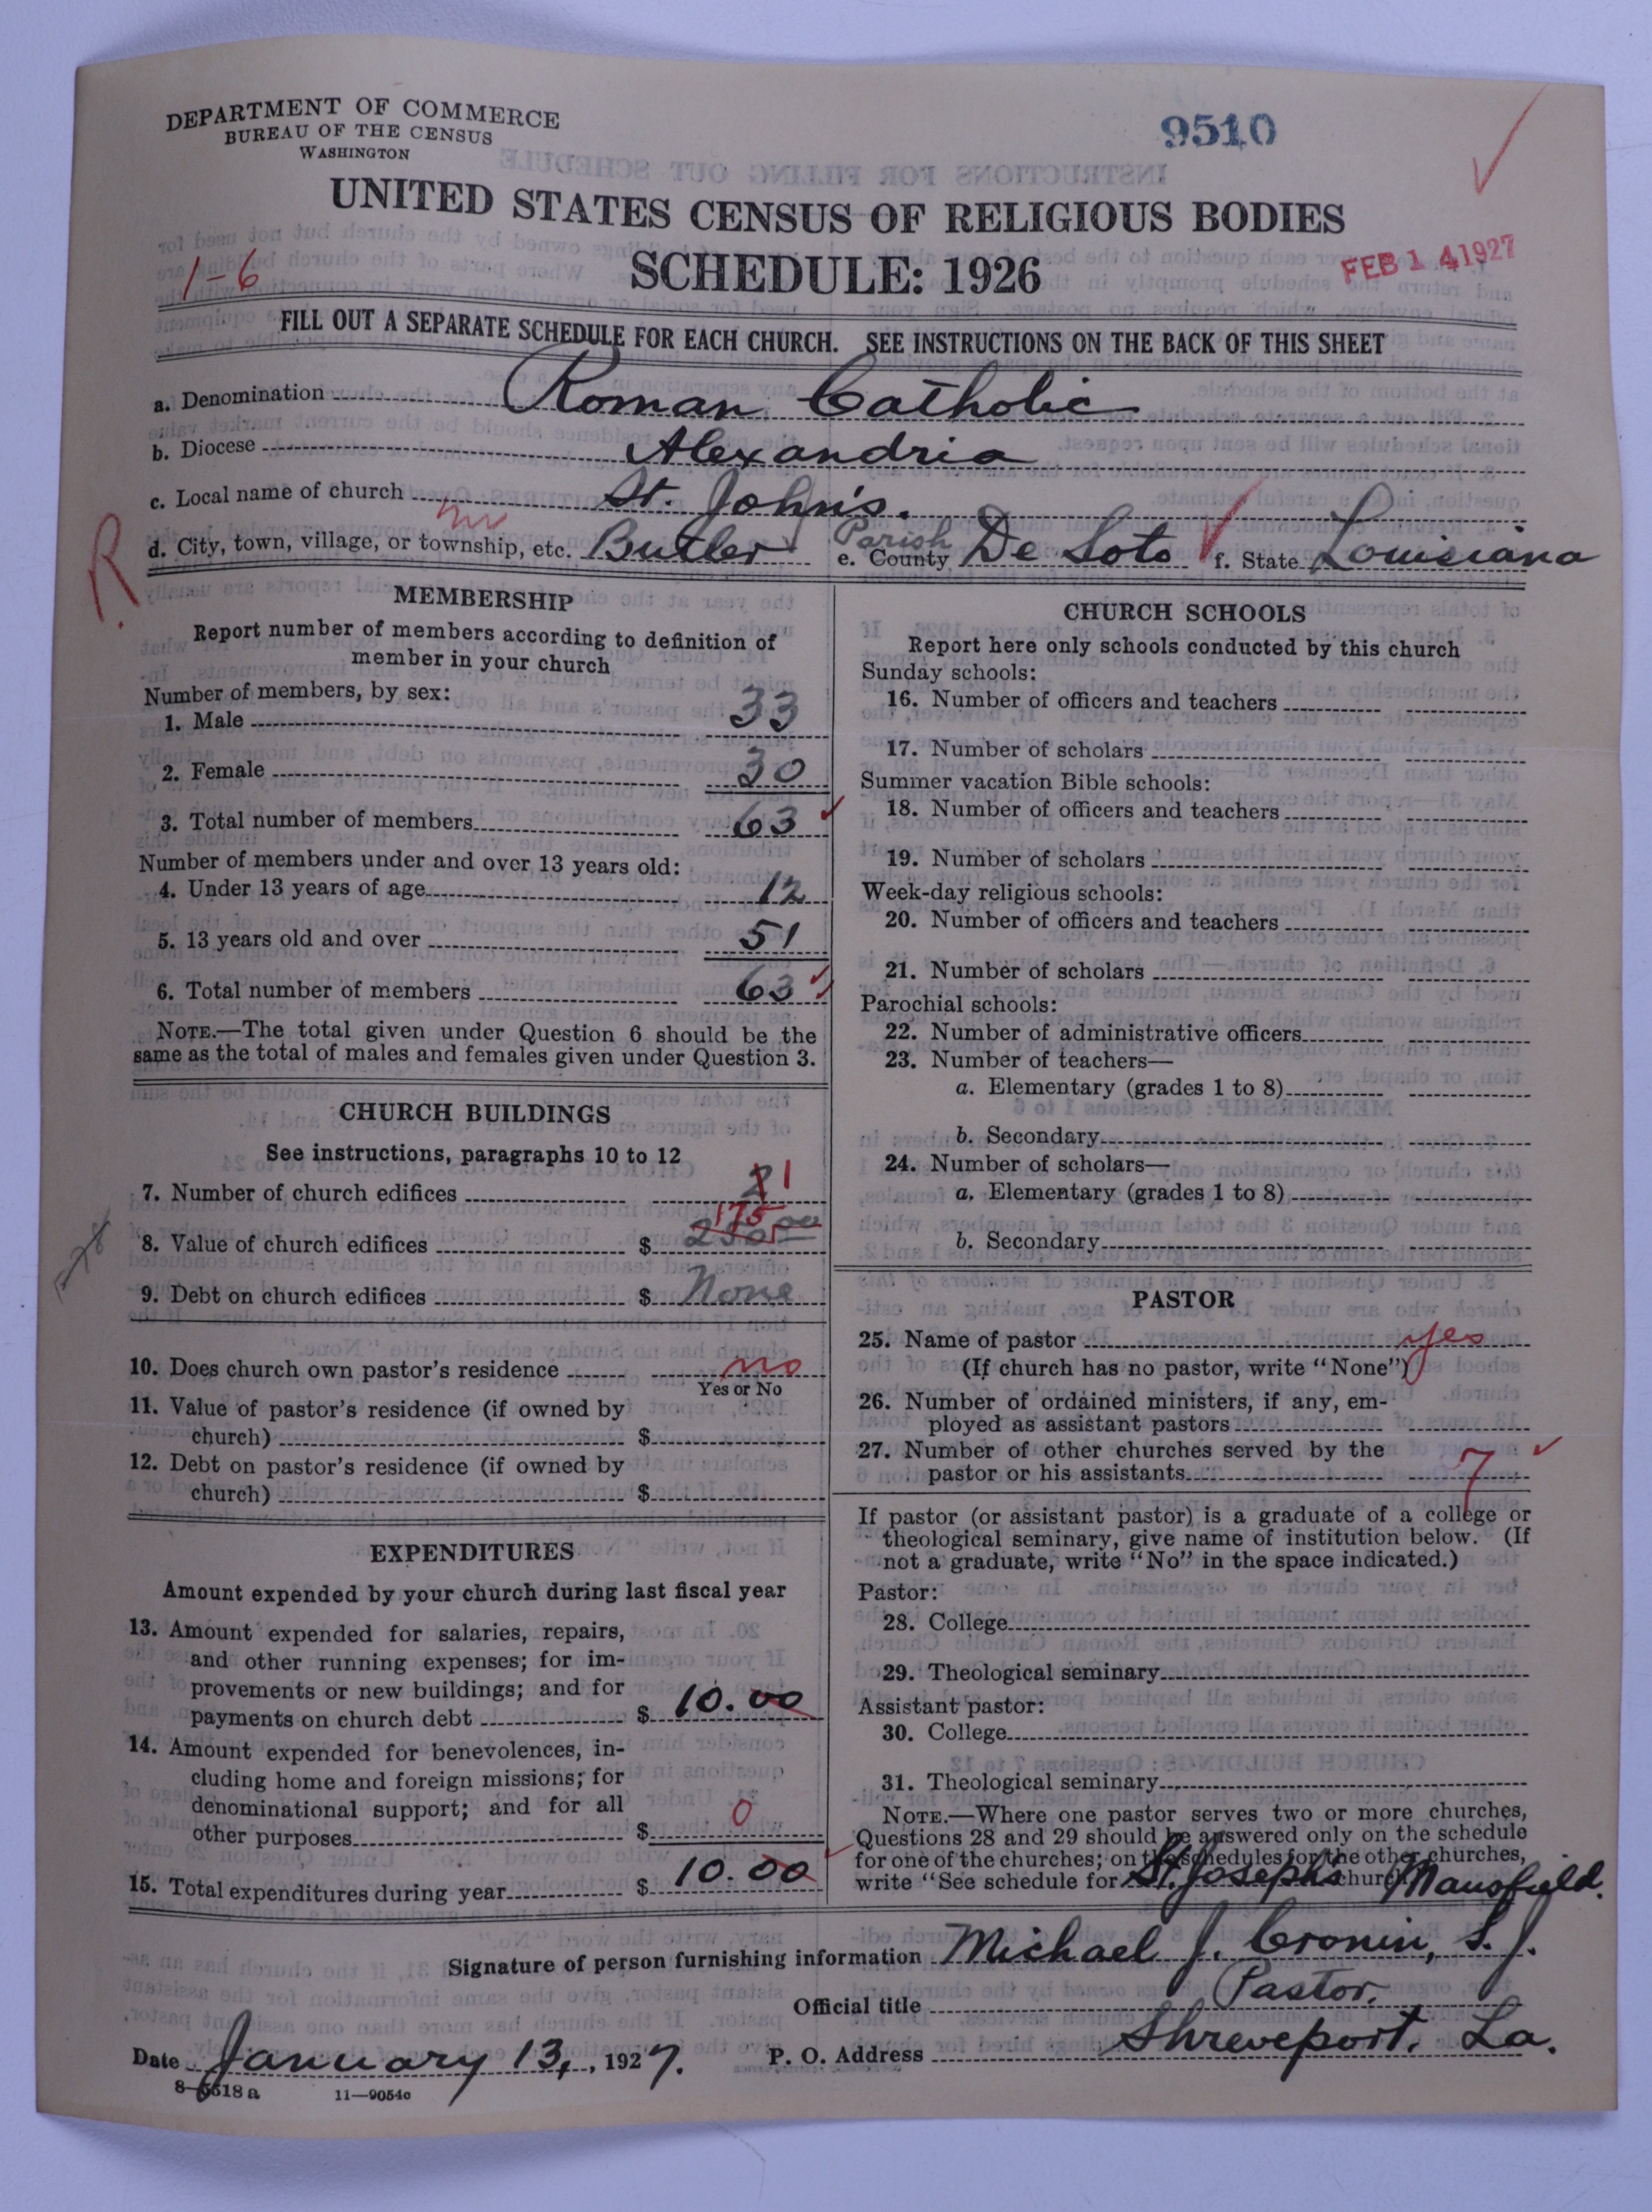 DEPARTMENT OF COMMERCE
BUREAU OF THE CENSUS
WASHINGTON
9510
UNITED STATES CENSUS OF RELIGIOUS BODIES
SCHEDULE: 1926
1-6
FEB 14 1927
FILL OUT A SEPARATE SCHEDULE FOR EACH CHURCH. SEE INSTRUCTIONS ON THE BACK OF THIS SHEET
a. Denomination Roman Catholic
b. Diocese Alexandria
c. Local name of church St. John's.
R.
d. City, town, village, or township, etc. Butler e. County Parish De Soto f. State Louisiana
MEMBERSHIP
Report number of members according to definition of
member in your church
Number of members, by sex:
1. Male 33
2. Female 30
3. Total number of members 63
Number of members under and over 13 years old:
4. Under 13 years of age 12
5. 13 years old and over 51
6. Total number of members 63
NOTE.—The total given under Question 6 should be the
same as the total of males and females given under Question 3.
CHURCH BUILDINGS
See instructions, paragraphs 10 to 12
7. Number of church edifices 2 1
175
8. Value of church edifices $ 250.00
9. Debt on church edifices $ None
10. Does church own pastor's residence no
Yes or No
11. Value of pastor's residence (if owned by
church) $
12. Debt on pastor's residence (if owned by
church) $
EXPENDITURES
Amount expended by your church during last fiscal year
13. Amount expended for salaries, repairs,
and other running expenses; for im-
provements or new buildings; and for
payments on church debt $ 10.00
14. Amount expended for benevolences, in-
cluding home and foreign missions; for
denominational support; and for all
other purposes $ 0
15. Total expenditures during year $ 10.00
CHURCH SCHOOLS
Report here only schools conducted by this church
Sunday schools:
16. Number of officers and teachers
17. Number of scholars
Summer vacation Bible schools:
18. Number of officers and teachers
19. Number of scholars
Week-day religious schools:
20. Number of officers and teachers
21. Number of scholars
Parochial schools:
22. Number of administrative officers
23. Number of teachers—
a. Elementary (grades 1 to 8)
b. Secondary
24. Number of scholars—
a. Elementary (grades 1 to 8)
b. Secondary
PASTOR
25. Name of pastor yes
(If church has no pastor, write "None")
26. Number of ordained ministers, if any, em-
ployed as assistant pastors
27. Number of other churches served by the
pastor or his assistants 7
If pastor (or assistant pastor) is a graduate of a college or
theological seminary, give name of institution below. (If
not a graduate, write "No" in the space indicated.)
Pastor:
28. College
29. Theological seminary
Assistant pastor:
30. College
31. Theological seminary
NOTE.—Where one pastor serves two or more churches,
Questions 28 and 29 should be answered only on the schedule
for one of the churches; on the schedules for the other churches,
write "See schedule for St. Joseph's church Mansfield.
Signature of person furnishing information Michael J. Cronin, S.J.
Official title Pastor.
Date January 13, 1927. P. O. Address Shreveport, La.
8-5518 a 11—9054c